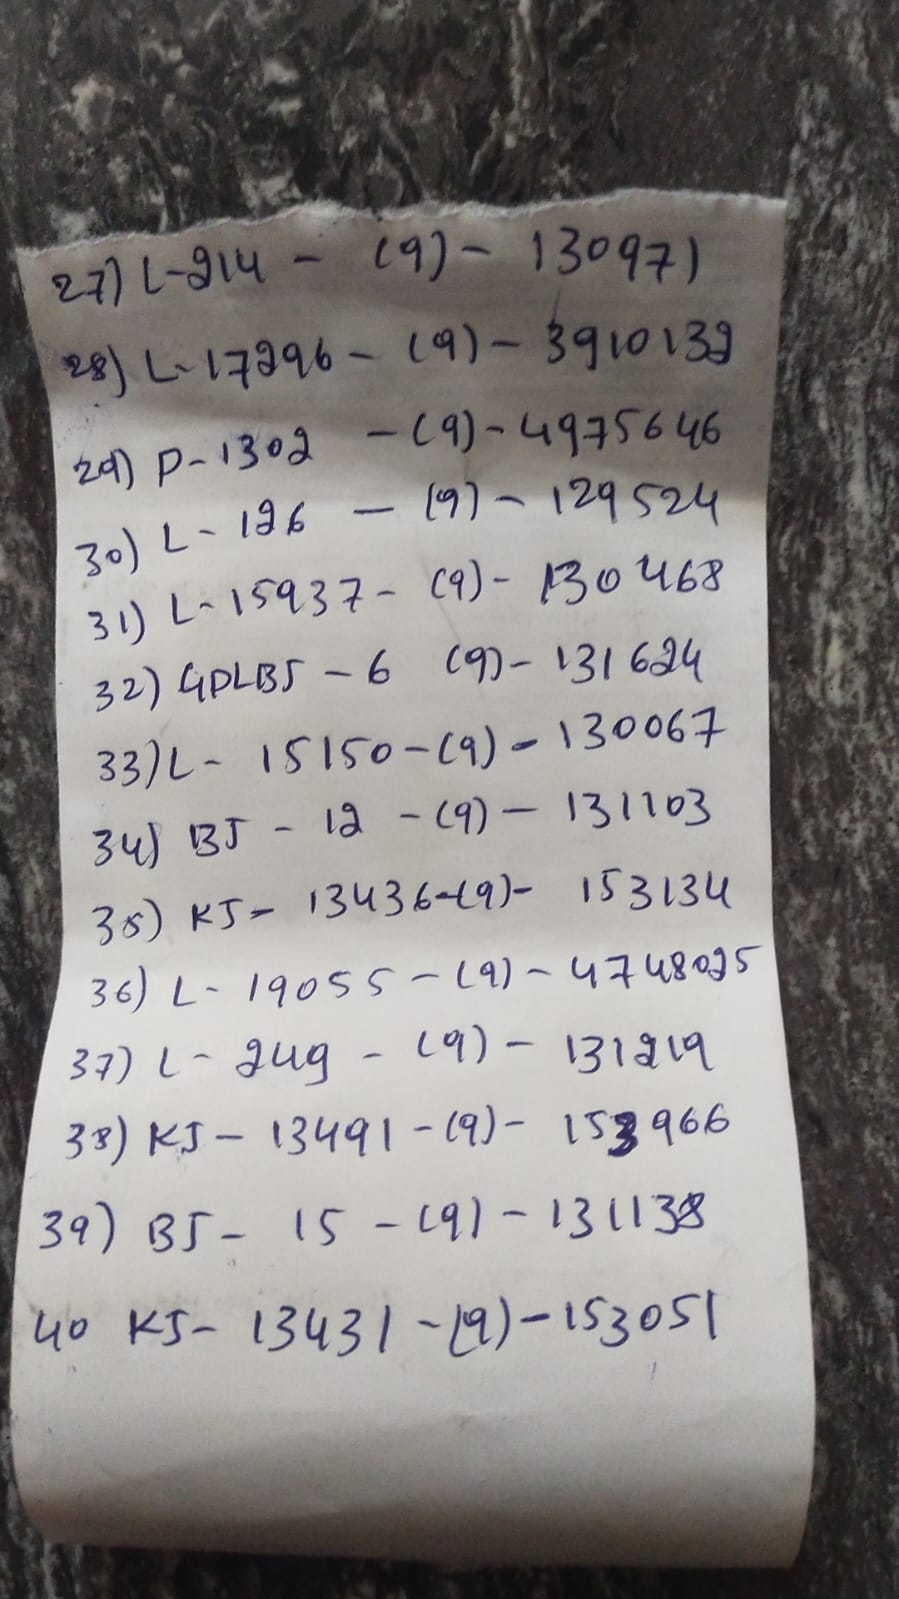 27) L-214 - (9) - 130971
28) L-17296 - (9) - 3910132
29) P-1302 - (9) - 4975646
30) L-126 - (9) - 129524
31) L-15937 - (9) - 130468
32) GDLBJ - 6 (9) - 131624
33) L- 15150 - (9) - 130067
34) BJ - 12 - (9) - 131103
35) KJ - 13436 - (9) - 153134
36) L- 19055 - (9) - 4748025
37) L- 249 - (9) - 131219
38) KJ - 13491 - (9) - 153966
39) BJ - 15 - (9) - 131138
40 KJ - 13431 - (9) - 153051